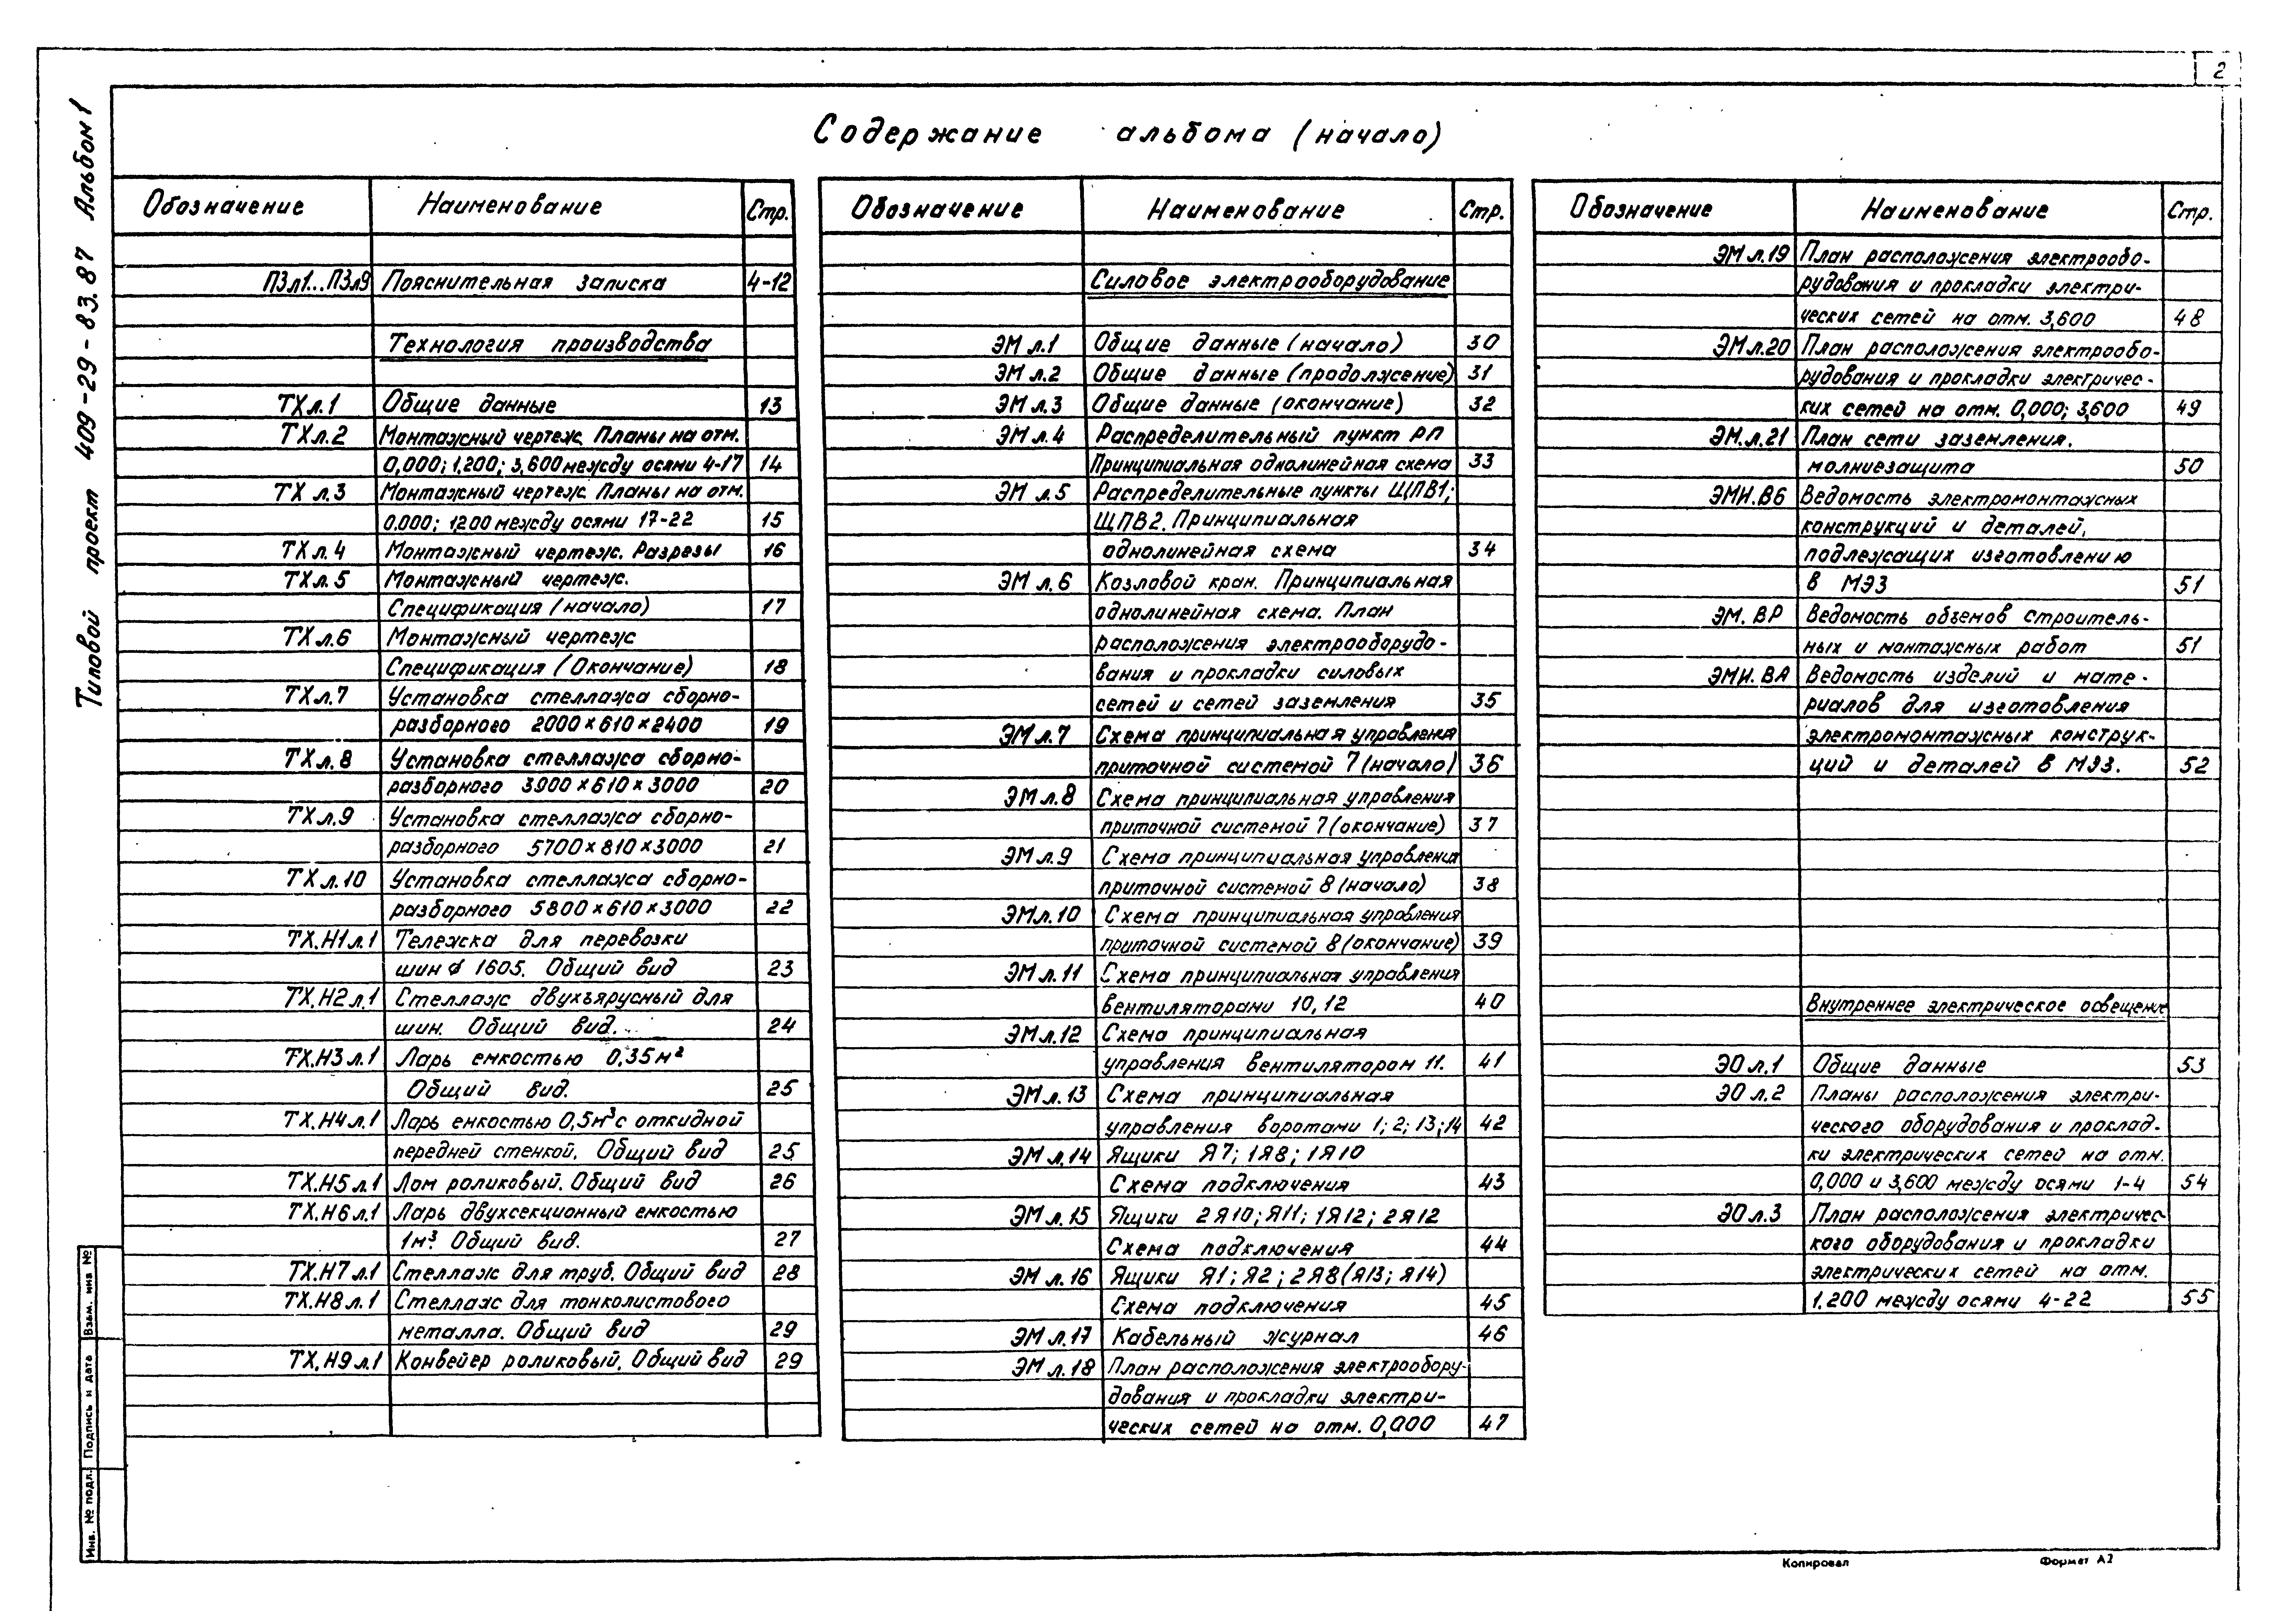 2
Типовой проект 409-29-83.87 Альбом 1
Содержание альбома (начало)
Обозначение Наименование Стр.
ПЗл1...ПЗл9 Пояснительная записка 4-12
Технология производства
ТХл.1 Общие данные 13
ТХл.2 Монтажный чертеж. Планы на отм.
0,000; 1,200; 3,600 между осями 4-17 14
ТХ л.3 Монтажный чертеж. Планы на отм.
0.000; 1200 между осями 17-22 15
ТХл.4 Монтажный чертеж. Разрезы 16
ТХл.5 Монтажный чертеж.
Спецификация (начало) 17
ТХл.6 Монтажный чертеж
Спецификация (Окончание) 18
ТХл.7 Установка стеллажа сборно-
разборного 2000×610×2400 19
ТХл.8 Установка стеллажа сборно-
разборного 3900×610×3000 20
ТХл.9 Установка стеллажа сборно-
разборного 5700×810×3000 21
ТХл.10 Установка стеллажа сборно-
разборного 5800×610×3000 22
ТХ.Н1л.1 Тележка для перевозки
шин ∅ 1605. Общий вид 23
ТХ.Н2л.1 Стеллаж двухъярусный для
шин. Общий вид. 24
ТХ.Н3л.1 Ларь емкостью 0,35м²
Общий вид. 25
ТХ.Н4л.1 Ларь емкостью 0,5м³ с откидной
передней стенкой. Общий вид 25
ТХ.Н5л.1 Лом роликовый. Общий вид 26
ТХ.Н6л.1 Ларь двухсекционный емкостью
1м³. Общий вид. 27
ТХ.Н7л.1 Стеллаж для труб. Общий вид 28
ТХ.Н8л.1 Стеллаж для тонколистового
металла. Общий вид 29
ТХ.Н9л.1 Конвейер роликовый. Общий вид 29
Обозначение Наименование Стр.
Силовое электрооборудование
ЭМ л.1 Общие данные (начало) 30
ЭМ л.2 Общие данные (продолжение) 31
ЭМ л.3 Общие данные (окончание) 32
ЭМ л.4 Распределительный пункт РП
Принципиальная однолинейная схема 33
ЭМ л.5 Распределительные пункты ЩПВ1;
ЩПВ2. Принципиальная
однолинейная схема 34
ЭМ л.6 Козловой кран. Принципиальная
однолинейная схема. План
расположения электрооборудо-
вания и прокладки силовых
сетей и сетей заземления 35
ЭМл.7 Схема принципиальная управления
приточной системой 7 (начало) 36
ЭМл.8 Схема принципиальная управления
приточной системой 7 (окончание) 37
ЭМл.9 Схема принципиальная управления
приточной системой 8 (начало) 38
ЭМл.10 Схема принципиальная управления
приточной системой 8 (окончание) 39
ЭМл.11 Схема принципиальная управления
вентиляторами 10, 12 40
ЭМл.12 Схема принципиальная
управления вентилятором 11. 41
ЭМл.13 Схема принципиальная
управления воротами 1; 2; 13; 14 42
ЭМл.14 Ящики Я7; 1Я8; 1Я10
Схема подключения 43
ЭМл.15 Ящики 2Я10; Я11; 1Я12; 2Я12
Схема подключения 44
ЭМ л.16 Ящики Я1; Я2; 2Я8 (Я13; Я14)
Схема подключения 45
ЭМл.17 Кабельный журнал 46
ЭМ л.18 План расположения электрообору-
дования и прокладки электри-
ческих сетей на отм. 0,000 47
Обозначение Наименование Стр.
ЭМ л.19 План расположения электрообо-
рудования и прокладки электри-
ческих сетей на отм. 3,600 48
ЭМл.20 План расположения электрообо-
рудования и прокладки электричес-
ких сетей на отм. 0,000; 3,600 49
ЭМ.л.21 План сети заземления.
молниезащита 50
ЭМИ.В6 Ведомость электромонтажных
конструкций и деталей,
подлежащих изготовлению
в МЭЗ 51
ЭМ. ВР Ведомость объемов строитель-
ных и монтажных работ 51
ЭМИ. ВА Ведомость изделий и мате-
риалов для изготовления
электромонтажных конструк-
ций и деталей в МЭЗ. 52
Внутреннее электрическое освещение
ЭО л.1 Общие данные 53
ЭО л.2 Планы расположения электри-
ческого оборудования и проклад-
ки электрических сетей на отм.
0,000 и 3,600 между осями 1-4 54
ЭО л.3 План расположения электричес-
кого оборудования и прокладки
электрических сетей на отм.
1.200 между осями 4-22 55
Инв. № подл. Подпись и дата Взам. инв №
Копировал Формат А2